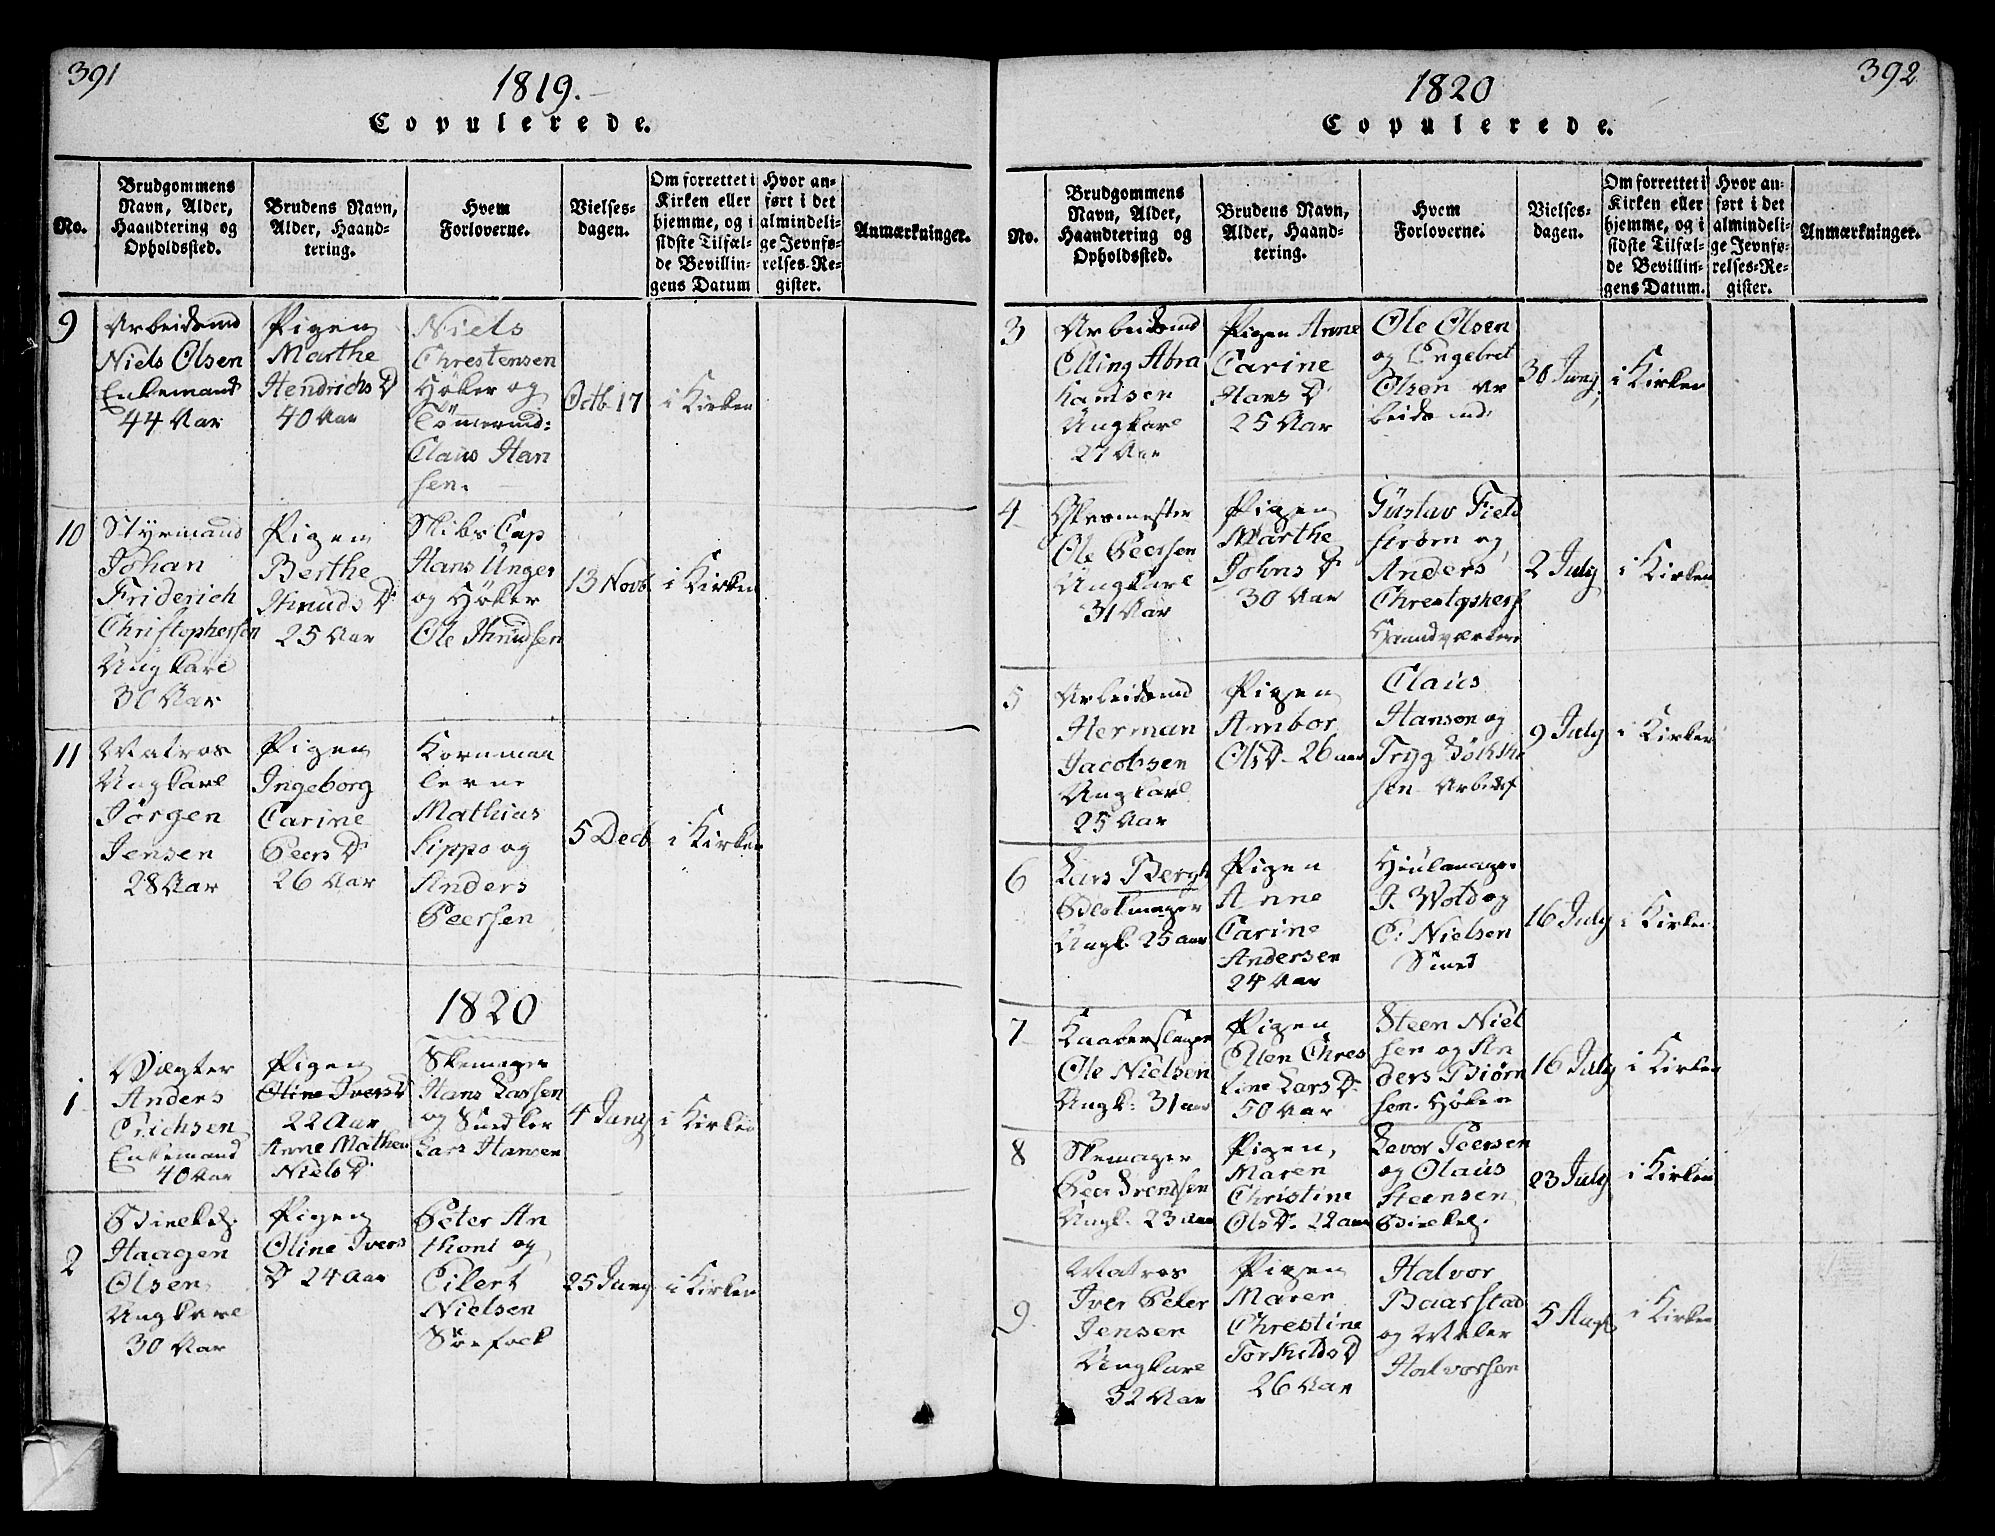 391
1819.
Copulerede.
No.
Brudgommens Navn, Alder, Haandtering og Opholdssted.
Brudens Navn, Alder, Haandtering.
Hvem Forloverne.
Vielsesdagen.
Om forrettet i Kirken eller hjemme, og i sidste Tilfælde Bevillingens Datum
Hvor anført i det almindelige Jevnførelses-Register.
Anmærkninger.
9
Arbeidsmd
Niels Olsen
Enkemand
44 Aar
Pigen
Marthe
Hendrichs D
40 Aar
Niels
Chrestensen
Høker og
Tømermd:
Claus Han
sen.
Octb 17
i Kirken
10
Styrmand
Johan
Friderich
Christophersen
Ungkarl
30 Aar
Pigen
Berthe
Knuds D
25 Aar
Skibs Cap
Hans Unger
og Høker
Ole Knudsen
13 Novb
i Kirken
11
Matros
Ungkarl
Jørgen
Jensen
28 Aar
Pigen
Ingeborg
Carine
Peers D
26 Aar
Kornmaa
lerne
Mathias
Sippo og
Anders
Peersen
5 Decb
i Kirken
1820
1
Vægter
Anders
Erichsen
Enkemand
40 Aar
Pigen
Oline Ivers D
22 Aar
Anne Mathea
Niels D
Skomager
Hans Larsen
og
Lars Hansen
4 Juny
i Kirken
2
Haagen
Olsen
Ungkarl
30 Aar
Pigen
Oline Ivers
D 24 Aar
Peter An
thoni og
Eilert
Nielsen
25 Juny
i Kirken
392
1820
Copulerede.
No.
Brudgommens Navn, Alder, Haandtering og Opholdssted.
Brudens Navn, Alder, Haandtering.
Hvem Forloverne.
Vielsesdagen.
Om forrettet i Kirken eller hjemme, og i sidste Tilfælde Bevillingens Datum.
Hvor anført i det almindelige Jevnførelses-Register.
Anmærkninger.
3
Arbeidsmd
Elling Abra
hamsen
Ungkarl
27 Aar
Pigen Anne
Carine
Hans D
25 Aar
Ole Olsen
og Engebret
Olsen Ar
beidsmd:
30 Juny
i Kirken
4
Ole Peersen
Ungkarl
31 Aar
Pigen
Marthe
Johns D
30 Aar
Gustav Field
strøm og
Anders
Chrestophers
Haandværkere
2 July
i Kirken
5
Arbeidsmd
Herman
Jacobsen
Ungkarl
25 Aar
Pigen
Ambor
Ols D. 26 aar
Claus
Hansen og
Tryg
sen Arbeids
9 July
i Kirken
6
Lars Bergh
Ungk. 25 aar
Pigen
Anne
Carine
Andersen
24 Aar
Hiulmager
J. Wold og
P. Nielsen
Smed
16 July
i Kirken
7
Kaaberslager
Ole Nielsen
Ungk: 31 aar
Pigen
Elen Chres
tine Lars D.
50 Aar
Steen Niel
sen og An
ders Biørn
sen. Høker
16 July
i Kirken
8
Skomager
Peer Svendsen
Ungk. 23 Aar
Pigen,
Maren
Christine
Ols D. 22 aar
Levor Peersen
og Olaus
Steensen
23 July
i Kirken
9.
Matros
Iver Peter
Jensen
Ungkarl
32 Aar
Pigen
Maren
Chrestine
Torkilds D
26 Aar
Halvor
Baarstad
og
Halvorsen
5 Aug
i Kirken